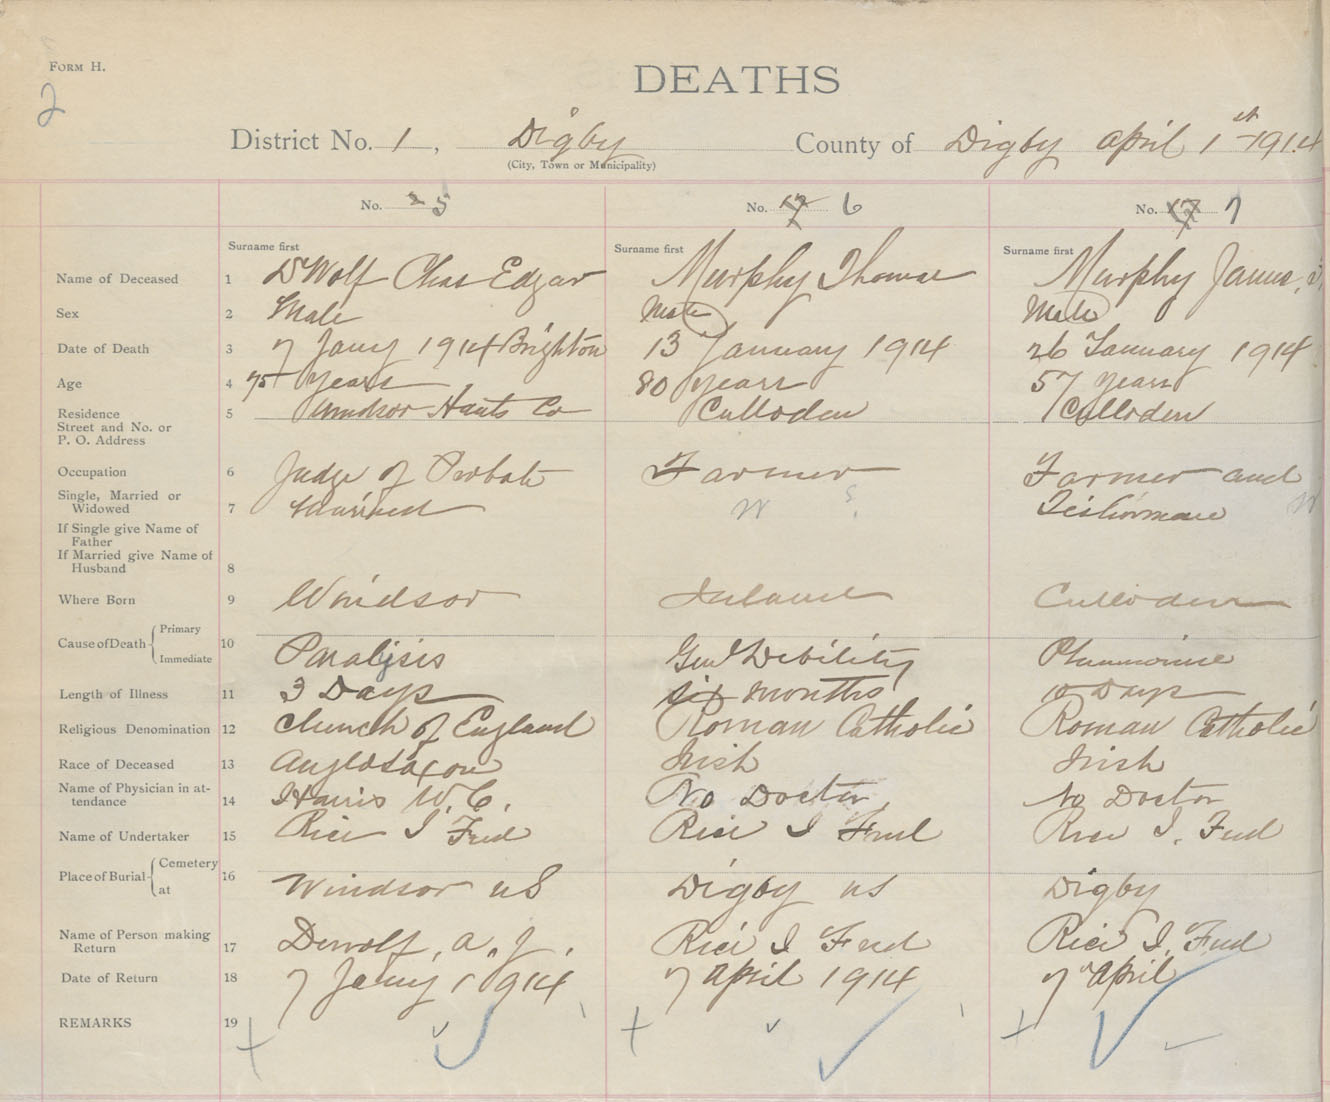 FORM H.
2
DEATHS
District No. 1, Digby County of Digby April 1st 1914
(City, Town or Municipality)
No. 5 No. 17 6 No. 17 7
Surname first Surname first Surname first
Name of Deceased 1 DWolf Chas Edgar Murphy Thomas Murphy James,
Sex 2 Male Male Male
Date of Death 3 7 Jany 1914 Brighton 13 January 1914 26 January 1914
Age 4 75 years 80 years 57 years
Residence 5 Windsor Hants Co Culloden Culloden
Street and No. or
P. O. Address
Occupation 6 Judge of Probate Farmer Farmer and
Single, Married or
Widowed 7 Married W S? Fishermane W
If Single give Name of
Father
If Married give Name of
Husband 8
Where Born 9 Windsor Ireland Culloden
Cause of Death Primary 10
Immediate Paralysis Genl Debility Pneumonine
Length of Illness 11 3 Days Six months 10 Days
Religious Denomination 12 Church of England Roman Catholic Roman Catholic
Race of Deceased 13 Anglosaxon Irish Irish
Name of Physician in at-
tendance 14 Harris W. C. No Doctor, No Doctor
Name of Undertaker 15 Rice I Fred Rice I Fred Rice I. Fred
Place of Burial Cemetery 16
at Windsor NS Digby NS Digby
Name of Person making
Return 17 Dewolf, A. J. Rice I Fred Rice I. Fred
Date of Return 18 7 Jany 1914 7 April 1914 7 April
REMARKS 19